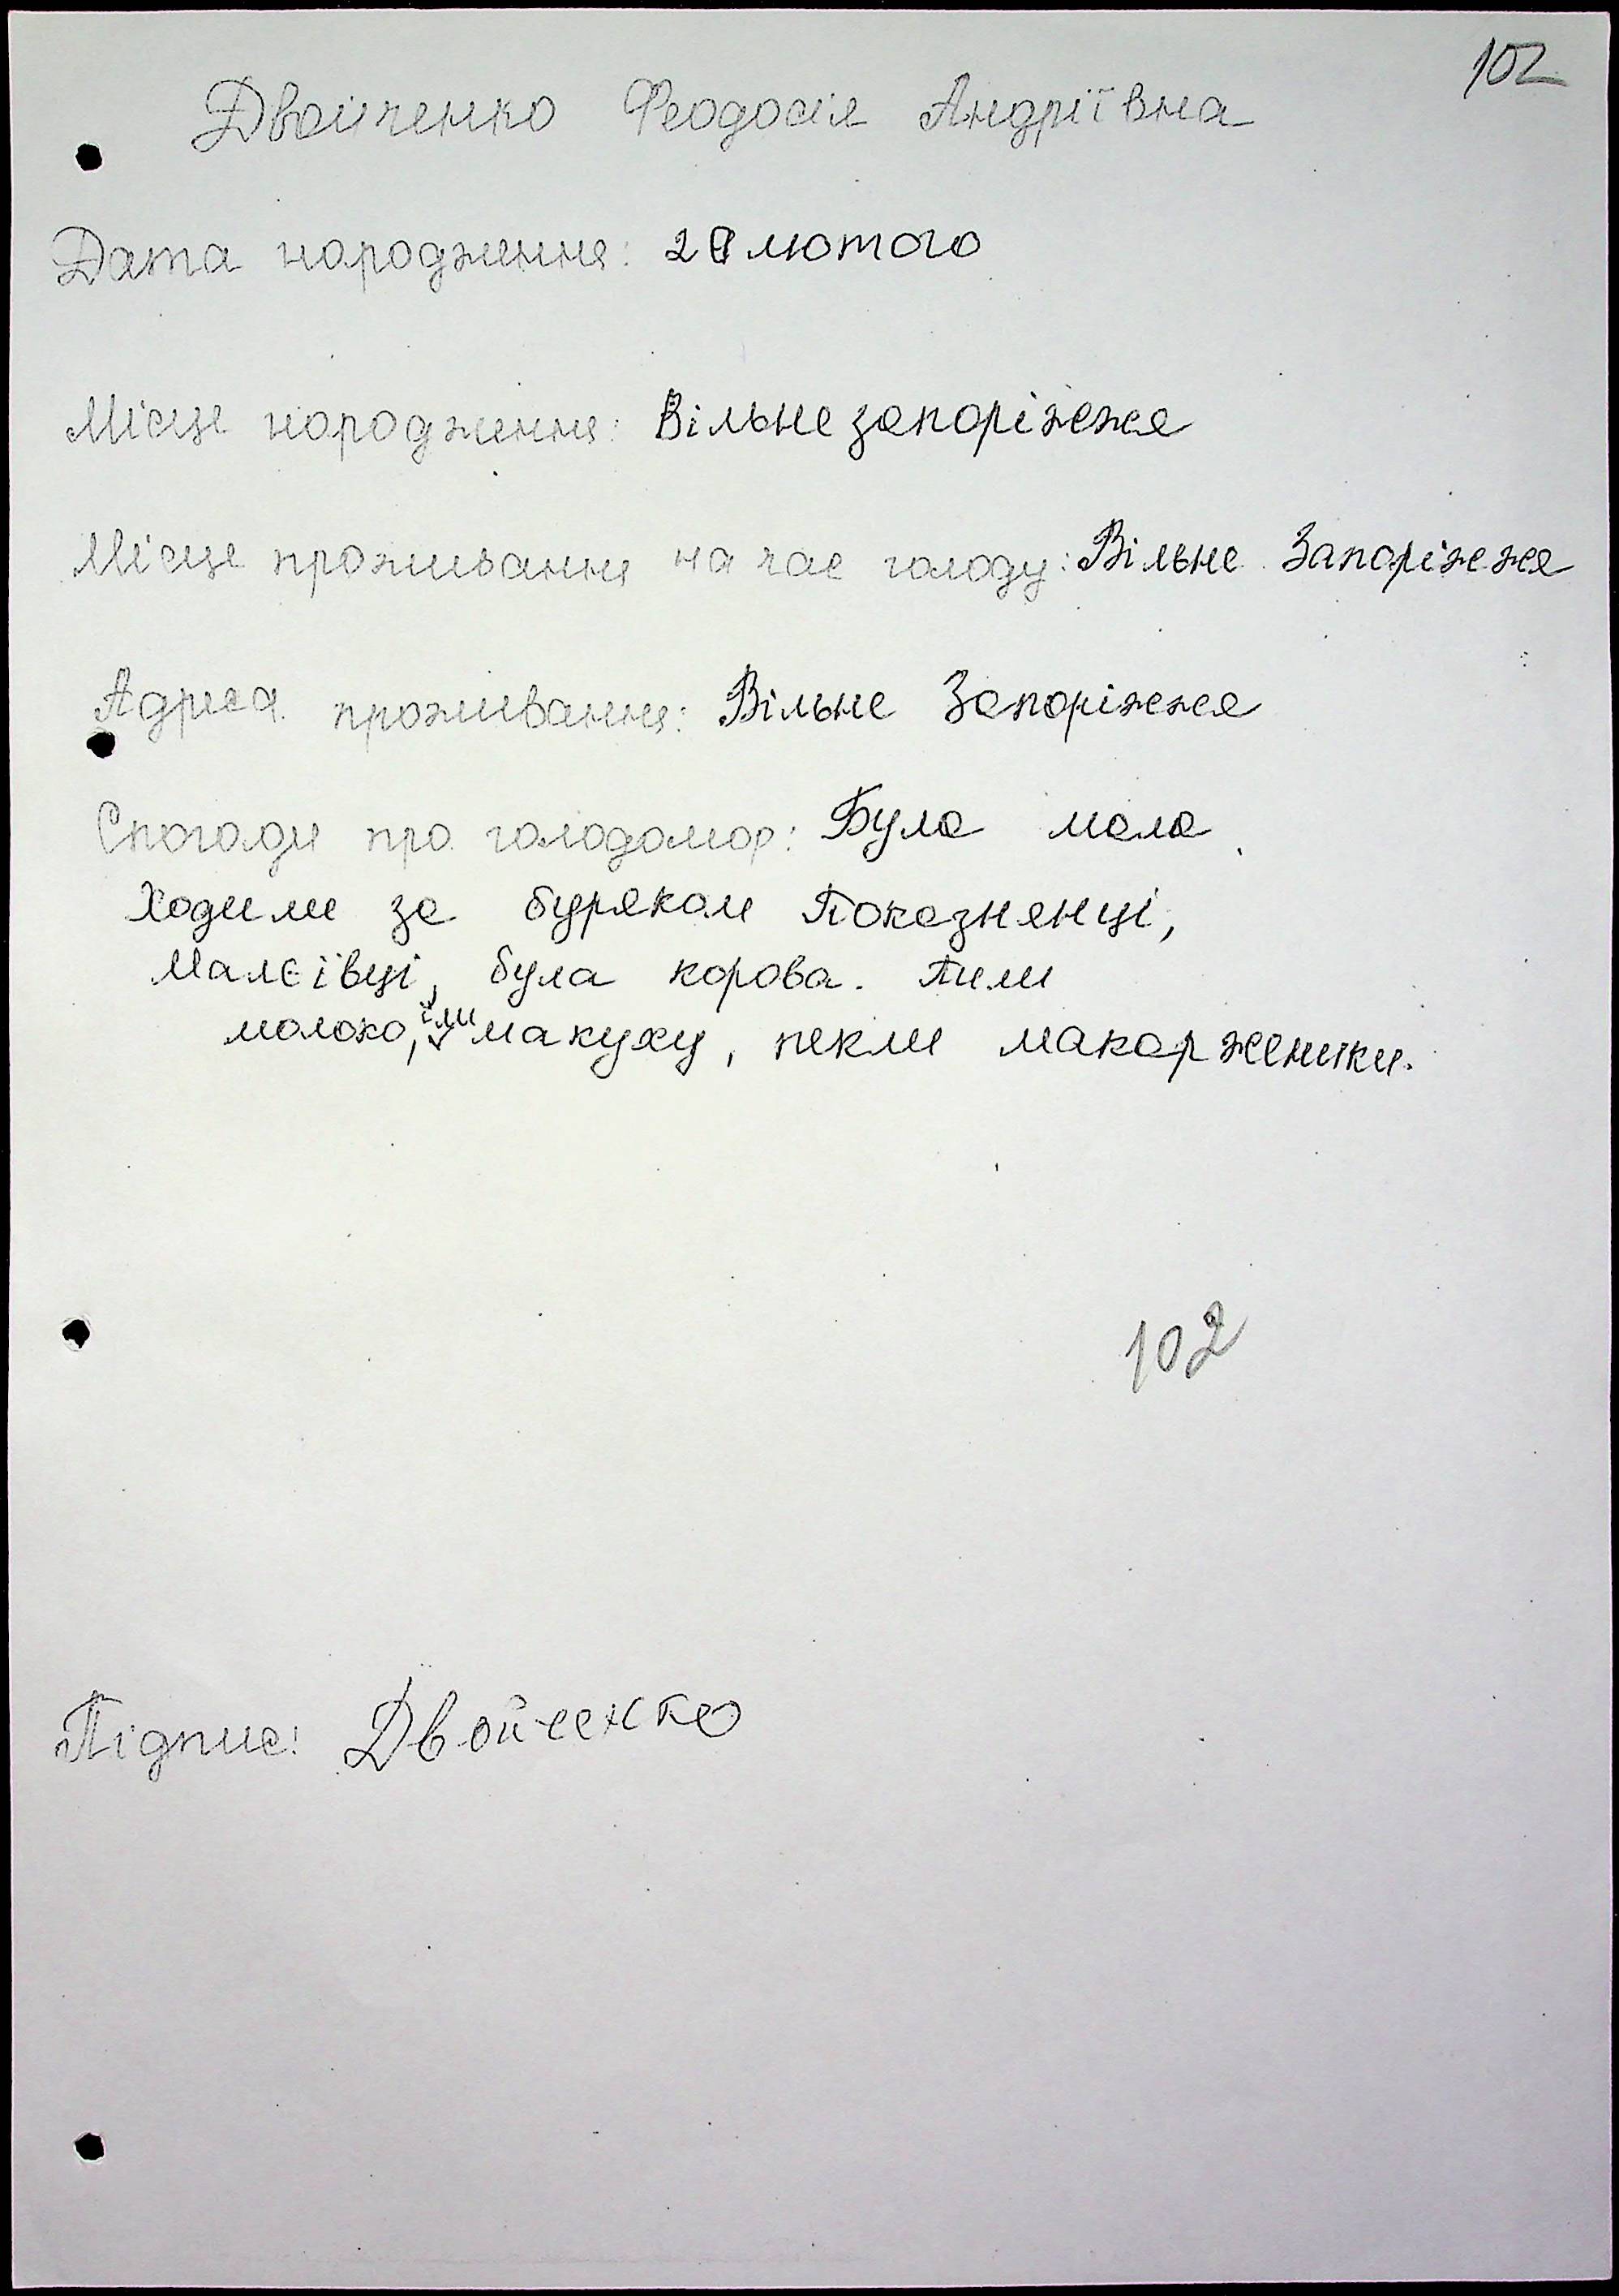 102
Двойченко Феодосія Андріївна
Дата народження: 20 лютого
Місце народження: Вільне запоріжжя
Місце проживання на час голоду: Вільне Запоріжжя
Адреса проживання: Вільне Запоріжжя
Спогади про голодомор: Була мала.
Ходили за буряком Показнянці,
Малєївці, була корова. Пили
молоко, їли макуху, пекли макорженики.
102
Підпис: Двойченко